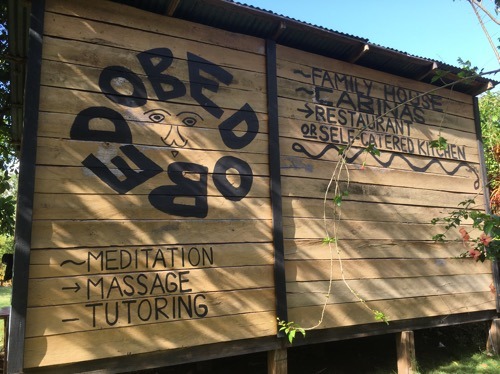 DOBEDOBE
~ MEDITATION
→ MASSAGE
– TUTORING
~ FAMILY HOUSE
~ CABINAS
→ RESTAURANT
OR SELF-CATERED KITCHEN